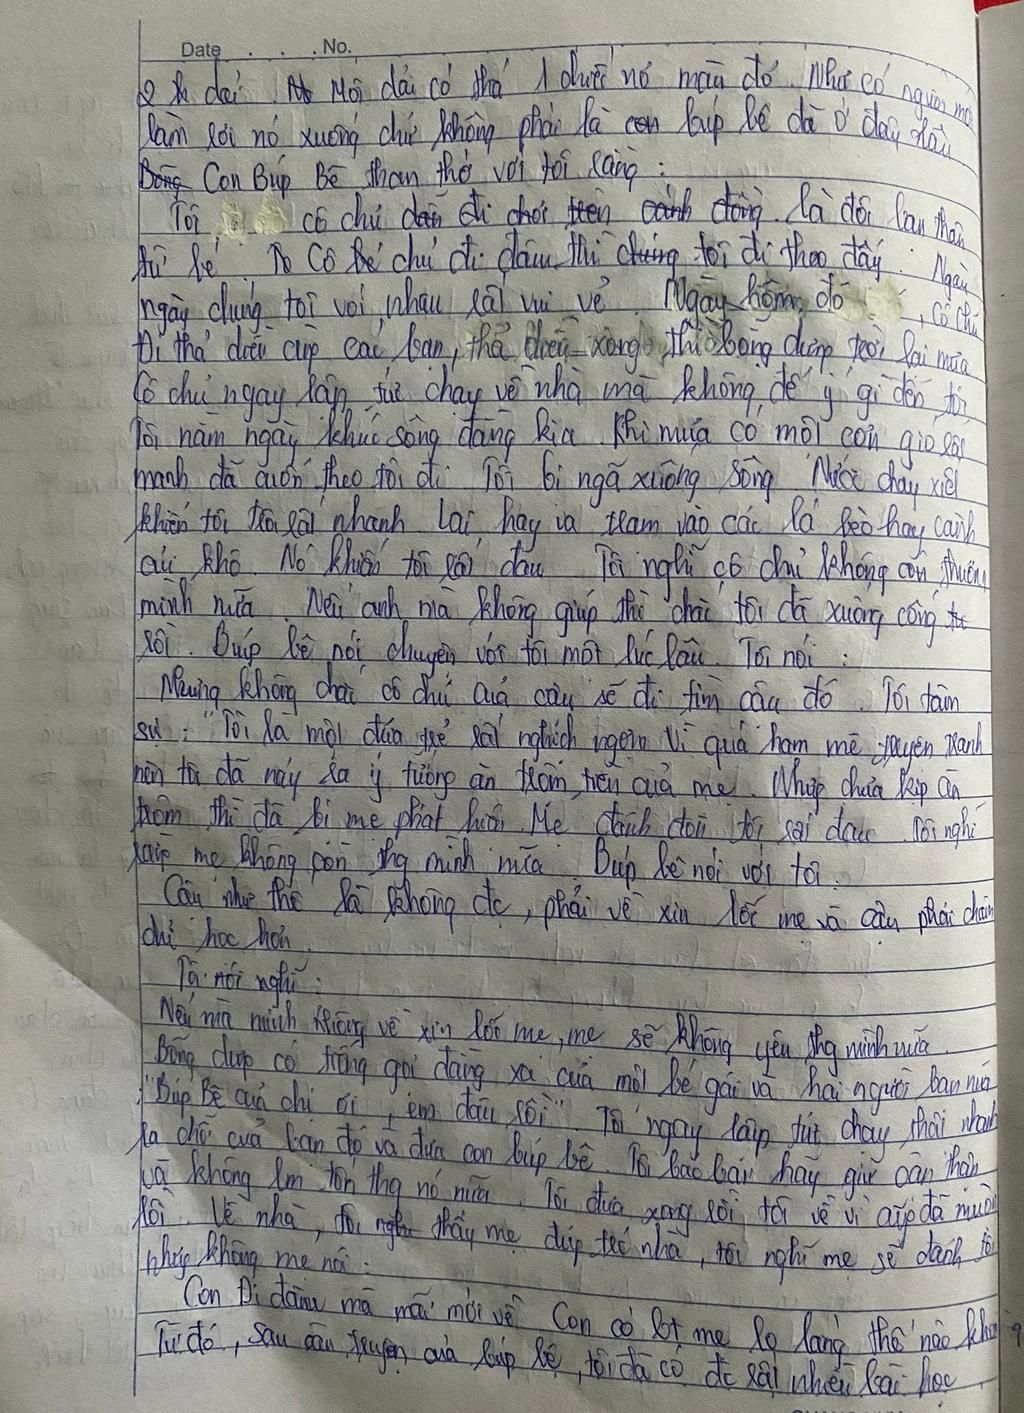 Date . . . . No.
2 k dái. Mỗi dải có thả 1 dưới nó màu đỏ. Như có người mới
làm rơi nó xuống chứ không phải là con búp bê đã ở đây lâu
Con Búp Bê than thở với tôi rằng:
Tôi cô chủ đi chơi trên cánh đồng. là đôi bạn thân
từ bé. Cô bé chủ đi đâu thì chúng tôi đi theo đấy. Ngày
ngày chúng tôi với nhau rất vui vẻ. Ngày hôm đó, cô chủ
Đi thả diều cùng các bạn, thả diều xong, thì bỗng dưng trời lại mưa
Cô chủ ngay lập tức chạy về nhà mà không để ý gì đến tôi
Tôi nằm ngay khúc sông đằng kia. Khi mưa có một cơn gió rất
mạnh đã cuốn theo tôi đi. Tôi bị ngã xuống sông. Nước chảy xiết
khiến tôi trôi rất nhanh. Lại hay va trạm vào các lá bèo hay cành
củi khô. Nó khiến tôi rất đau. Tôi nghĩ cô chủ không còn thương
mình nữa. Nếu anh mà không giúp thì chắc tôi đã xuống cống
rồi. Búp bê nói chuyện với tôi một lúc lâu. Tôi nói:
Nhưng không chắc cô chủ của cậu sẽ đi tìm cậu đó. Tôi tâm
sự: "Tôi là một đứa trẻ rất nghịch ngợm Vì quá ham mê truyện tranh
nên tôi đã nảy ra ý tưởng ăn trộm tiền của mẹ. Nhưng chưa kịp ăn
trộm thì đã bị mẹ phát hiện. Mẹ đánh đòn tôi rất đau. Tôi nghĩ
rằng mẹ không còn thg mình nữa. Búp bê nói với tôi:
Cậu như thế là không đc, phải về xin lỗi mẹ và cần phải chăm
chỉ học hơn.
Tôi nghĩ:
Nếu mà mình không về xin lỗi mẹ, mẹ sẽ không yêu thg mình nữa.
Bỗng dưng có tiếng gọi đằng xa của một bé gái và hai người bạn nữa
"Búp Bê của chị ơi, em đâu rồi". Tôi ngay lập tức chạy thật nhanh
ra chỗ của bạn đó và đưa con búp bê. Tôi bảo bạn hãy giữ cẩn thận
và không lm tổn thg nó nữa. Tôi đưa xong rồi, tôi về vì cũng đã muộn
rồi. Về nhà, tôi thấy mẹ đứng trc nhà, tôi nghĩ mẹ sẽ đánh tôi
nhưng không mẹ nói:
Con Đi đâu mà mãi mới về. Con có bt mẹ lo lắng thế nào không
Từ đó, sau câu truyện của búp bê, tôi đã có đc rất nhiều bài học